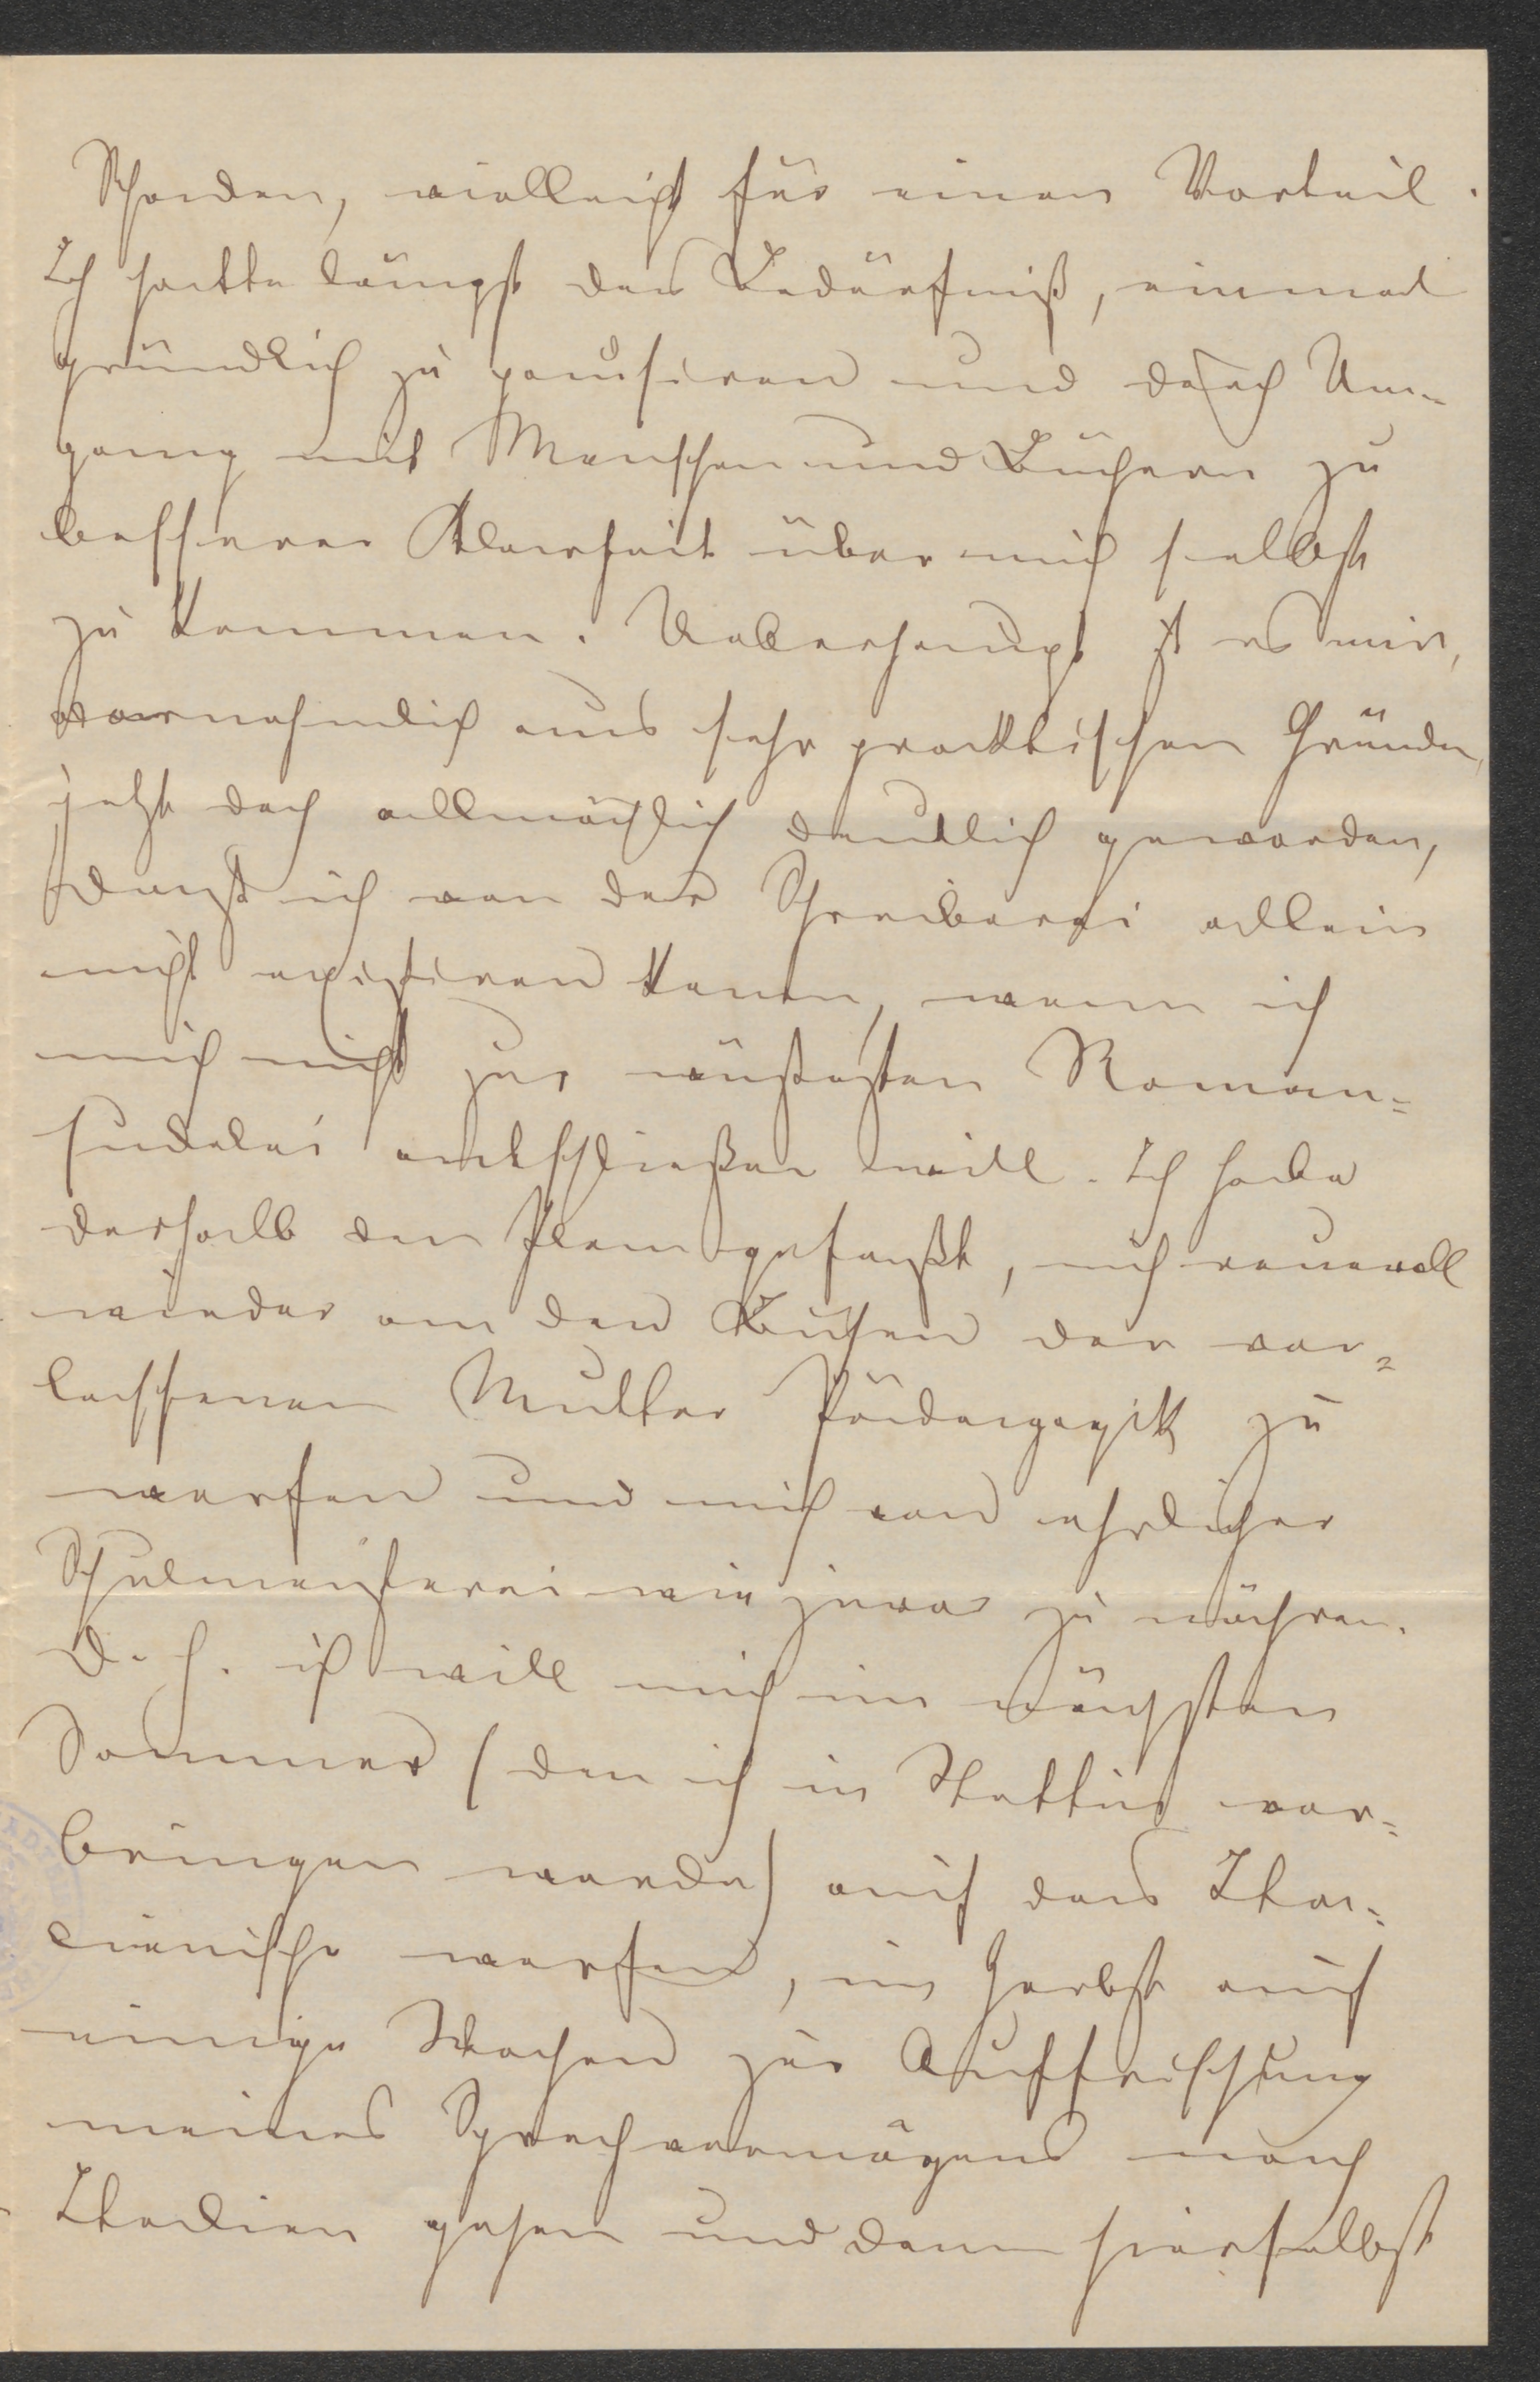 Schaden, vielleicht für einen Vorteil.
Ich hatte längst das Bedürfniß, einmal
gründlich zu pausiren und durch Um-
gang mit Menschen und Büchern zu
besserer Klarheit über mich selbst
zu kommen. Ueberhaupt ist es mir,
vornehmlich aus sehr praktischen Gründen,
jetzt doch allmächlich deutlich geworden,
daß ich von der Schreiberei allein
nicht existiren kann, wenn ich
mich nicht zur wüstesten Roman=
sudelei entschließen will. Ich habe
deshalb den Plan gefaßt, mich reuevoll
wieder an den Busen der ver=
lassenen Mutter Pädagogik zu
werfen und mich von ehrlicher
Schulmeisterei wie zuvor zu nähren.
D. h. ich will mich im nächsten
Sommer (den ich in Stettin ver=
bringen werde) auf das Ita=
lienische werfen, im Herbst auf
einige Wochen zur Auffrischung
meines Sprachvermögens nach
Italien gehen und dann hierselbst